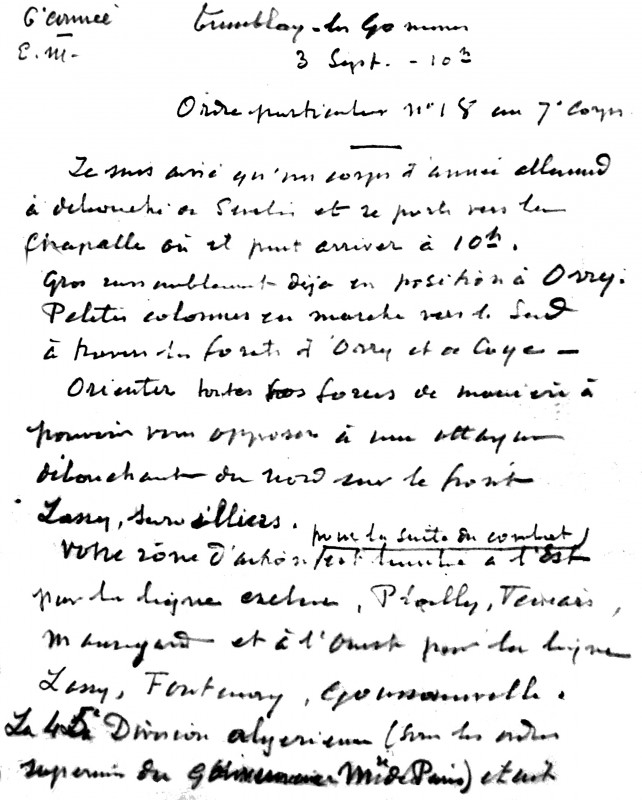 6e armée Tremblay-les Gonesses
E.M.- 3 Sept. - 10h
Ordre particulier n° 18 au 7e Corps
Je suis avisé qu'un corps d'armée allemand
à débouché de Senlis et se porte vers la
Chapelle où il peut arriver à 10h.
Gros rassemblement déjà en position à Orry.
Petites colonnes en marche vers le Sud
à travers les forêts d'Orry et de Coye -
Orienter toutes forces de manière à
pouvoir vous opposer à une attaque
débouchant du nord sur le front
Lassy, Survilliers.
pour la suite du combat
Votre zône d'action est limitée à l'Est
par la ligne exclue, Plailly,
Mauregard et à l'Ouest par la ligne
Lassy, Fontenay, Goussainville.
La 45e Division algérienne (sous les ordres
supérieurs du Gouverneur Mre de Paris) étant